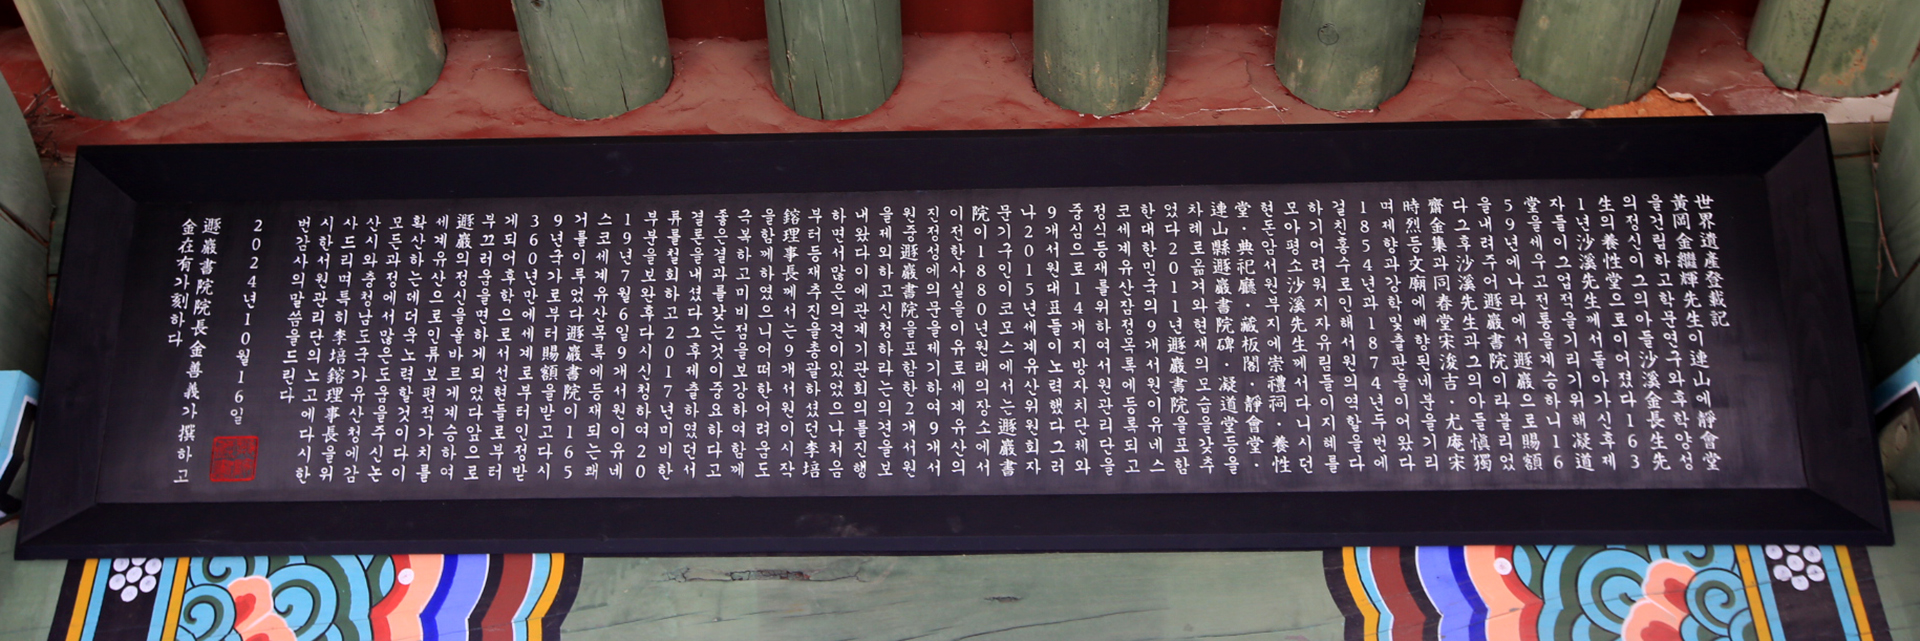 世界遺産登載記
黃岡金繼輝先生이連山에靜會堂
을건립하고학문연구와후학양성
의정신이그의아들沙溪金長生先
生의養性堂으로이어졌다163
1년沙溪先生께서돌아가신후제
자들이그업적을기리기위해凝道
堂을세우고전통을계승하니16
59년에나라에서遯巖으로賜額
을내려주어遯巖書院이라불리었
다그후沙溪先生과그의아들愼獨
齋金集과同春堂宋浚吉·尤庵宋
時烈등文廟에배향된네분을기리
며제향과강학및출판을이어왔다
1854년과1874년두번에
걸친홍수로인해서원의역할을다
하기어려워지자유림들이지혜를
모아평소沙溪先生께서다니시던
현돈암서원부지에崇禮祠·養性
堂·典祀廳·藏板閣·靜會堂·
連山縣遯巖書院碑·凝道堂등을
차례로옮겨와현재의모습을갖추
었다2011년遯巖書院을포함
한대한민국의9개서원이유네스
코세계유산잠정목록에등록되고
정식등재를위하여서원관리단을
중심으로14개지방자치단체와
9개서원대표들이노력했다그러
나2015년세계유산위원회자
문기구인이코모스에서는遯巖書
院이1880년원래의장소에서
이전한사실을이유로세계유산의
진정성에의문을제기하여9개서
원중遯巖書院을포함한2개서원
을제외하고신청하라는의견을보
내왔다이에관계기관회의를진행
하면서많은의견이있었으나처음
부터등재추진을총괄하셨던李培
鎔理事長께서는9개서원이시작
을함께하였으니어떠한어려움도
극복하고미비점을보강하여함께
좋은결과를갖는것이중요하다고
결론을내셨다그후제출하였던서
류를철회하고2017년미비한
부분을보완후다시신청하여20
19년7월6일9개서원이유네
스코세계유산목록에등재되는쾌
거를이루었다遯巖書院이165
9년국가로부터賜額을받고다시
360년만에세계로부터인정받
게되어후학으로서선현들로부터
부끄러움을면하게되었다앞으로
遯巖의정신을올바르게계승하여
세계유산으로인류보편적가치를
확산하는데더욱노력할것이다이
모든과정에서많은도움을주신논
산시와충청남도국가유산청에감
사드리며특히李培鎔理事長을위
시한서원관리단의노고에다시한
번감사의말씀을드린다
2024년10월16일
遯巖書院院長金善義가撰하고
金在有가刻하다